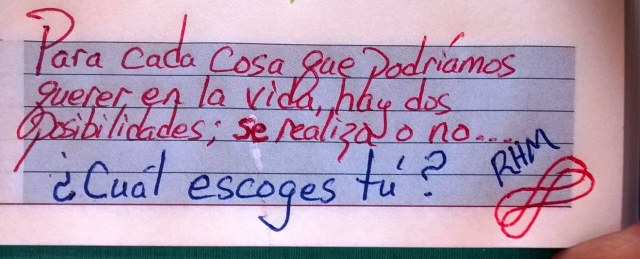 Para cada cosa que podríamos
querer en la vida, hay dos
posibilidades; se realiza o no....
¿Cuál escoges tú?
RHM